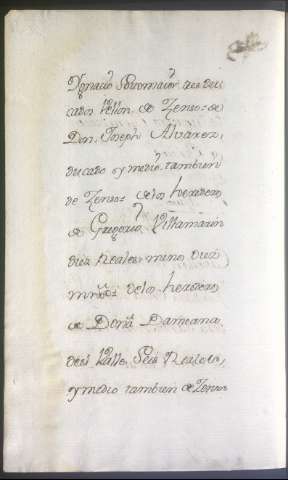 Ygnacio Sotomaior dos du
cados vellon de Zenso = de
Don Joseph Alvarez,
ducado y medio tambien
de Zenso = de los herederos
de Gregorio Villamarin
diez Reales menos diez
mrs = de los herederos
de Dona Damiana
del Valle, Seis Reales,
y medio tambien de Zenso